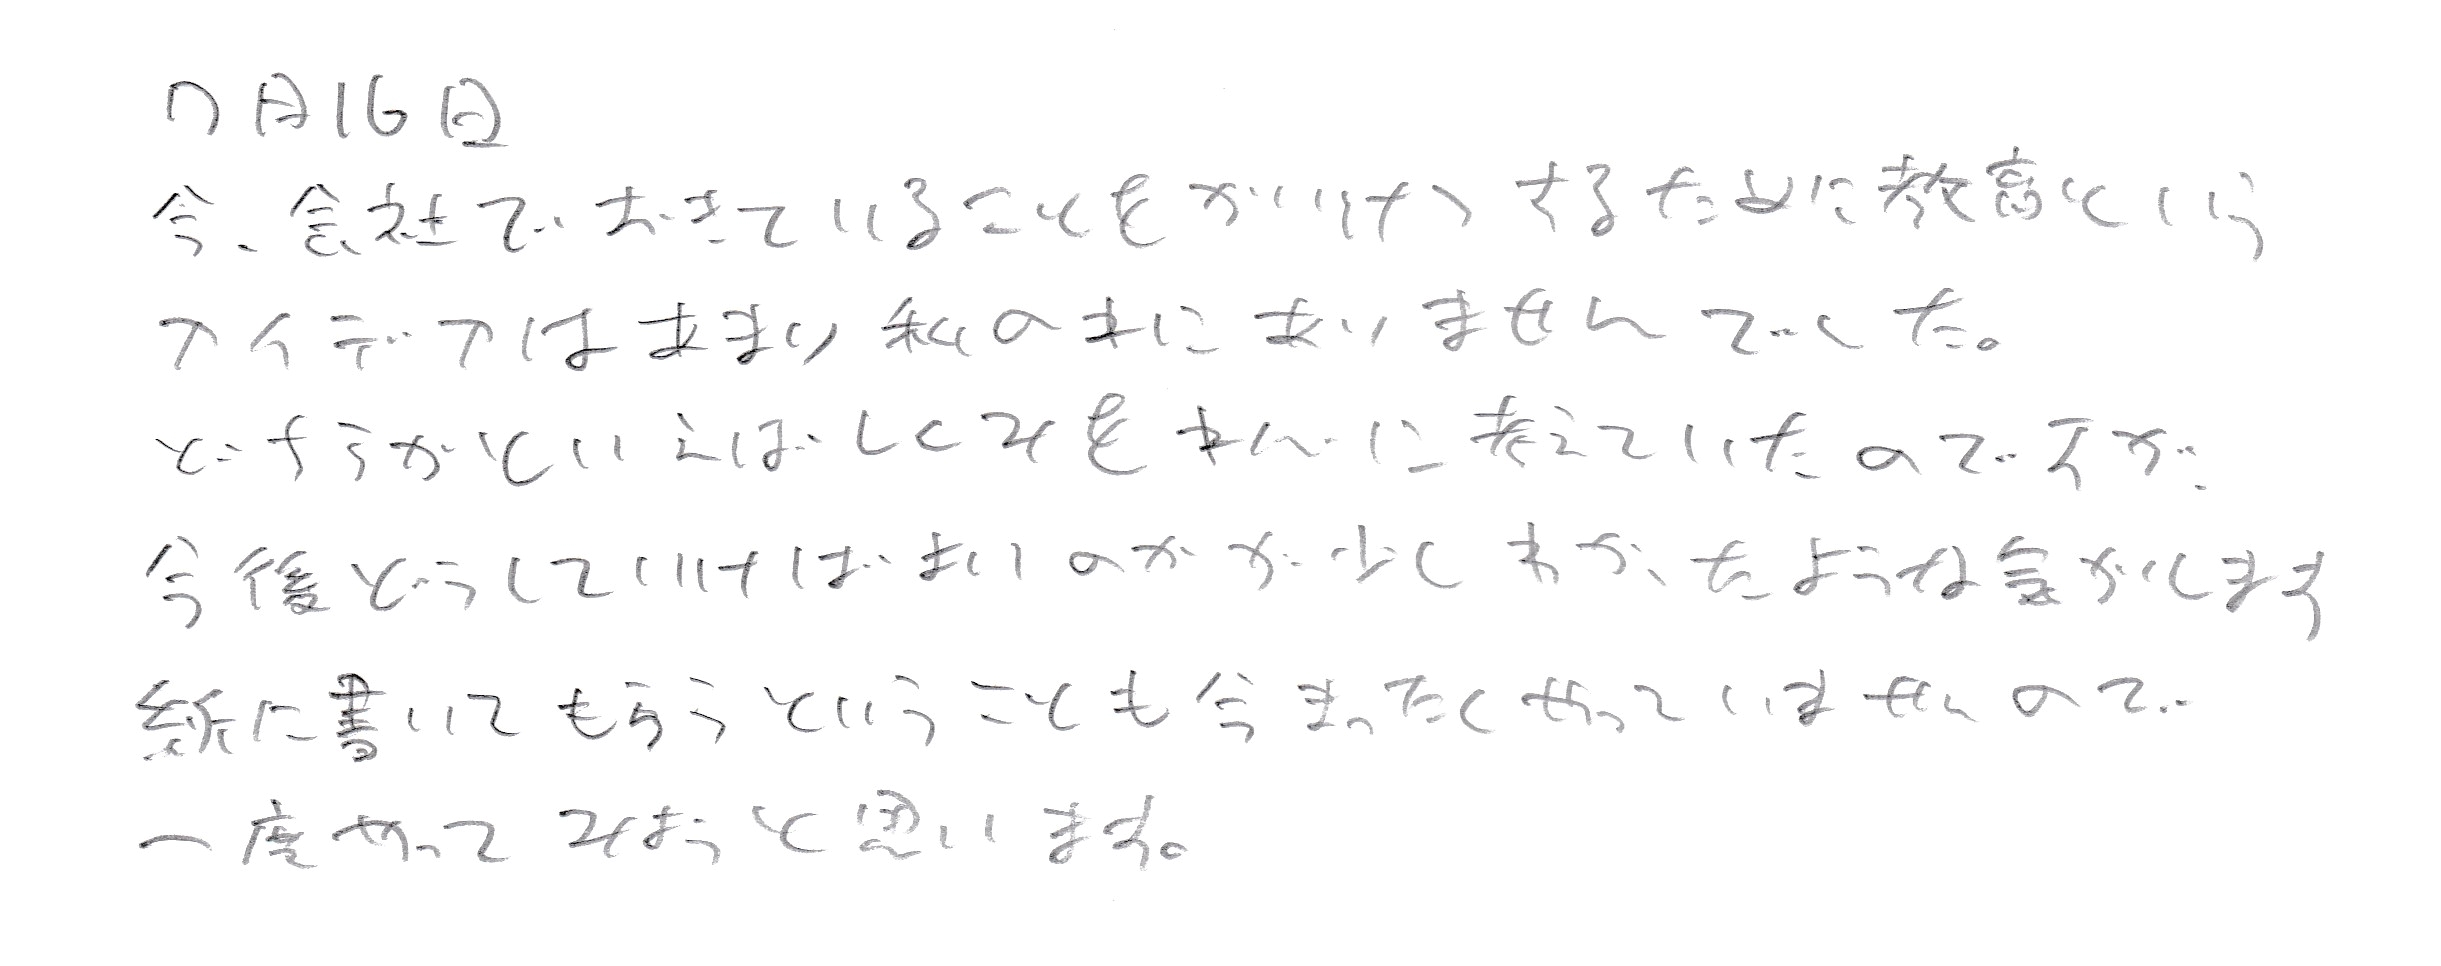 7月16日
今、会社でおきていることをかいけつするために教育という
アイデアはあまり私の中にありませんでした。
どちらかといえばしくみを 考えていたのですが
今後どうしていけばよいのかが少しわかったような気がします
紙に書いてもらうということも今まったくやっていませんので
一度やってみようと思います。